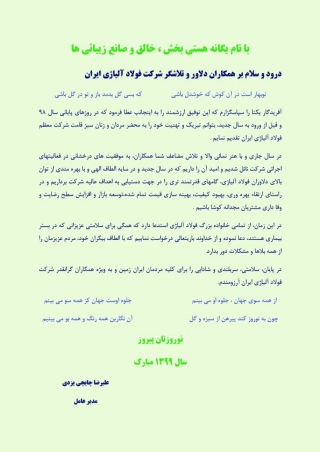 با نام یگانه هستی بخش ، خالق و صانع زیبائی ها
درود و سلام بر همکاران دلاور و تلاشگر شرکت فولاد آلیاژی ایران
نوبهار است در آن کوش که خوشدل باشی که بسی گل بدمد باز و تو در گل باشی
آفریدگار یکتا را سپاسگزارم که این توفیق ارزشمند را به اینجانب عطا فرمود که در روزهای پایانی سال ۹۸
و قبل از ورود به سال جدید، بتوانم تبریک و تهنیت خود را به محضر مردان و زنان سبز قامت شرکت معظم
فولاد آلیاژی ایران تقدیم نمایم.
در سال جاری و با همت عالی والا و تلاش مضاعف شما همکاران، به موفقیت های درخشانی در فعالیتهای
اجرائی شرکت نائل شدیم و امید آن را داریم که در سال جدید و در سایه الطاف الهی و با بهره مندی از توان
بالای دلاوران فولاد آلیاژی، گامهای قدرتمند تری را در جهت دستیابی به اهداف عالیه شرکت برداریم و در
راستای ارتقاء بهره وری، بهبود کیفیت، بهینه سازی قیمت تمام شده،توسعه بازار و افزایش سطح رضایت و
وفا داری مشتریان مجدانه کوشا باشیم .
در این زمان، از تمامی خانواده بزرگ فولاد آلیاژی استدعا دارد که همگی برای سلامتی عزیزانی که در بستر
بیماری هستند، دعا نموده و از خداوند باریتعالی درخواست نماییم که با الطاف بیکران خود، مردم عزیزمان را
از همه بلاها و مشکلات دور بدارد.
در پایان، سلامتی، سربلندی و شادابی را برای کلیه مردمان ایران زمین و به ویژه همکاران گرانقدر شرکت
فولاد آلیاژی ایران آرزومندم.
از همه سوی جهان ، جلوه او می بینم جلوه اوست جهان کز همه سو می بینم
چون به نوروز کند پیرهن از سبزه و گل آن نگارین همه رنگ و همه بو می بینم
نوروزتان پیروز
سال ۱۳۹۹ مبارک
علیرضا چایچی یزدی
مدیر عامل